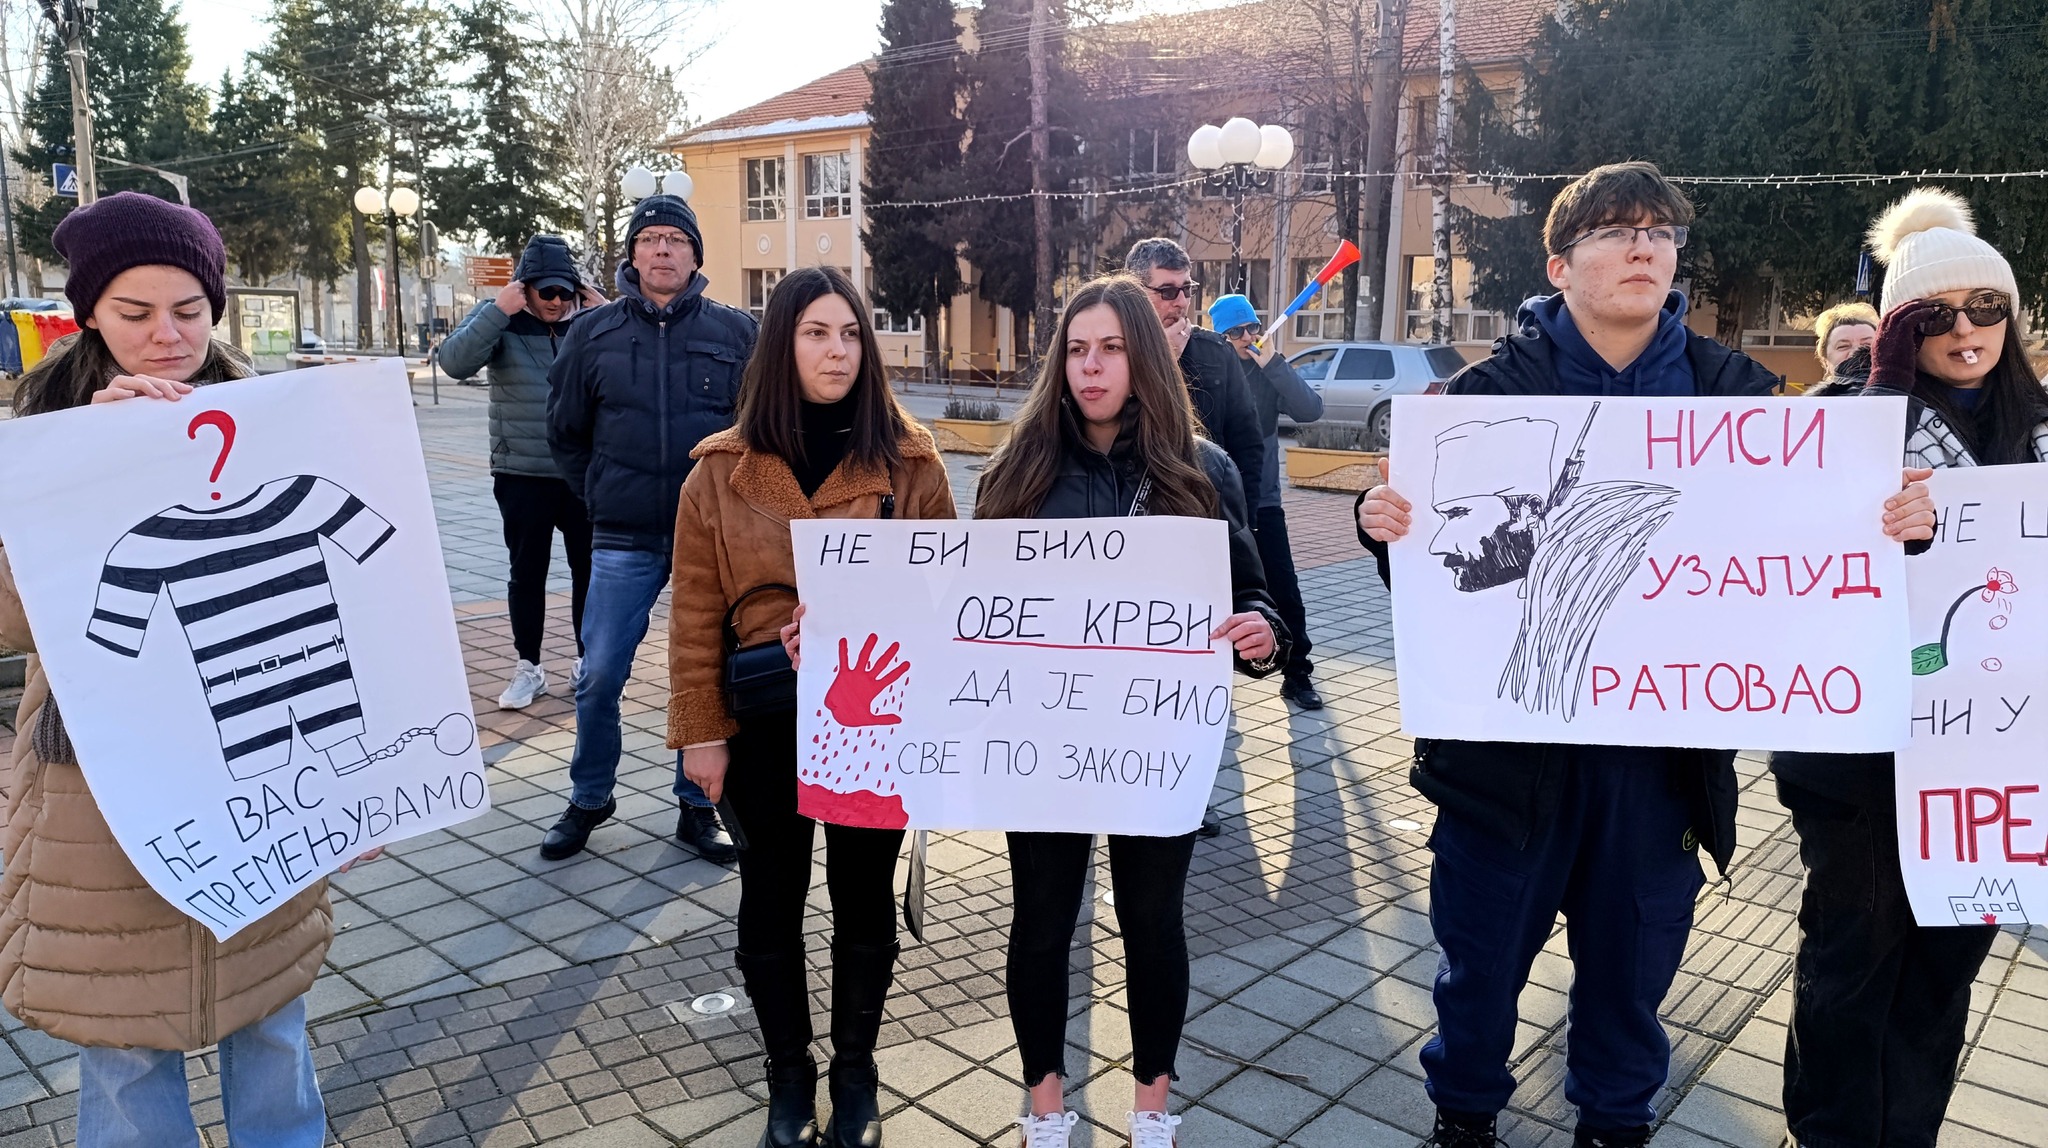 ?
ЋЕ ВАС
ПРЕМЕЊУВАМО
НЕ БИ БИЛО
ОВЕ КРВИ
ДА ЈЕ БИЛО
СВЕ ПО ЗАКОНУ
НИСИ
УЗАЛУД
РАТОВАО
НЕ
НИ У